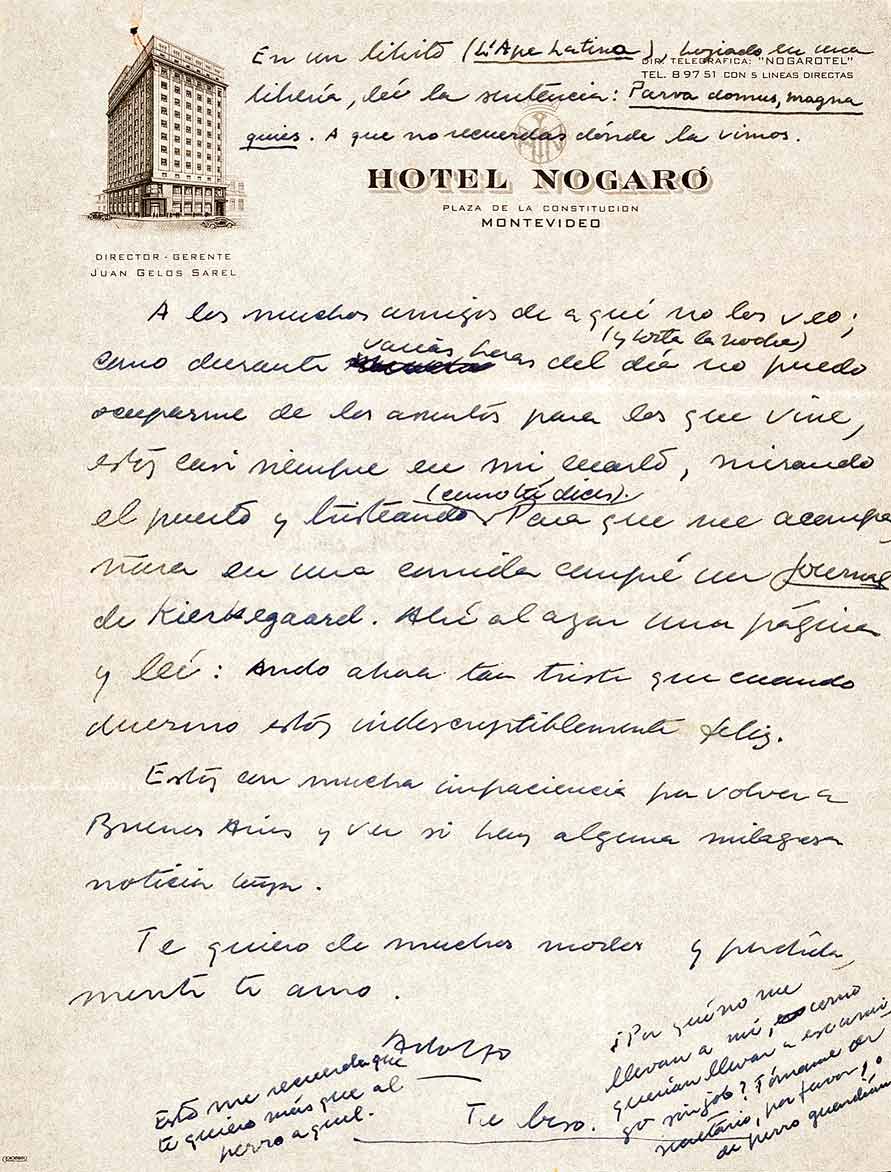 En un librito (L'Ape Latina), hojeado en una
librería, leí la sentencia: Parva domus, magna
quies. A que no recuerdas dónde la vimos.
DIR. TELEGRAFICA: "NOGAROTEL"
TEL. 8 97 51 CON 5 LINEAS DIRECTAS
HOTEL NOGARÓ
PLAZA DE LA CONSTITUCION
MONTEVIDEO
DIRECTOR - GERENTE
JUAN GELOS SAREL
A los muchos amigos de aquí no los veo;
como durante varias horas del día (y toda la noche) no puedo
ocuparme de los asuntos para los que vine,
estoy casi siempre en mi cuarto, mirando
el puerto y tristeando (como tú dices). Para que me acompa
ñara en una comida compré un Journal
de Kierkegaard. Abrí al azar una página
y leí: Ando ahora tan triste que cuando
duermo estoy indescriptiblemente feliz.
Estoy con mucha impaciencia por volver a
Buenos Aires y ver si hay alguna milagrosa
noticia tuya.
Te quiero de muchos modos y perdida
mente te amo.
Adolfo
Te beso.
Esto me recuerda que
te quiero más que al
perro aquel.
¿Por qué no me
llevan a mí, como
querían llevar a ese ami
go sin job? Tómame de
secretario, por favor, o
de perro guardián